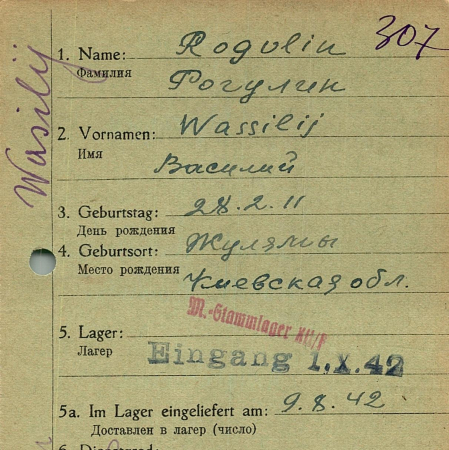 307
Wasilij
1. Name: Rogulin
Фамилия
Рогулин
2. Vornamen: Wassilij
Имя
Василий
3. Geburtstag: 28.2.11
День рождения
4. Geburtsort: Жуляны
Место рождения
Киевская обл.
M.-Stammlager
5. Lager:
Лагерь
Eingang 1.X.42
5a. Im Lager eingeliefert am: 9.8.42
Доставлен в лагерь (число)